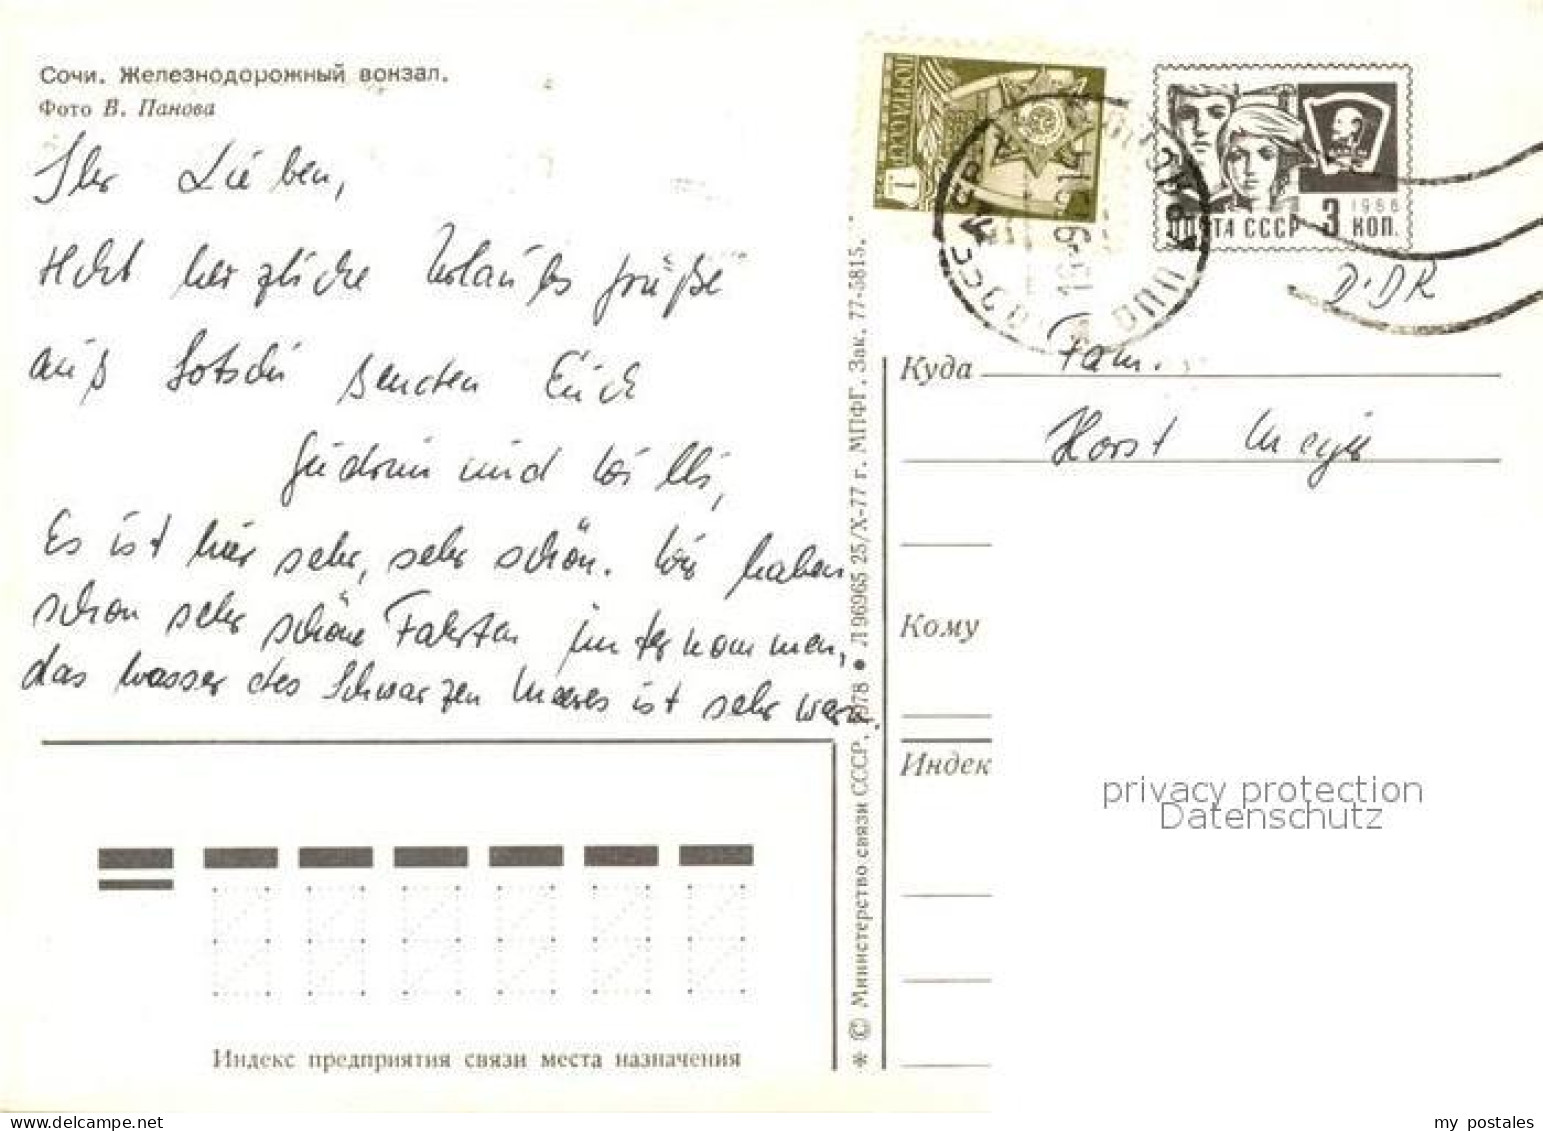 Сочи. Железнодорожный вокзал.
Фото В. Панова
Ihr Lieben,
Acht herzliche Urlaubsgrüße
aus Sotschi senden Euch
Gudrun und Willi,
Es ist hier sehr, sehr schön. Wir haben
schon sehr schöne Fahrten unternommen,
das Wasser des Schwarzen Meeres ist sehr warm.
Индекс предприятия связи места назначения
✳ © Министерство связи СССР, 1978 ● Л 96965 25/X-77 г. МПФГ. Зак. 77-5815.
1
ПОЧТА СССР 3 КОП.
1966
DDR
Куда Fam.
Horst Meyer
Кому
Индек
privacy protection
Datenschutz
ansichtskartenhandel.net
my postales